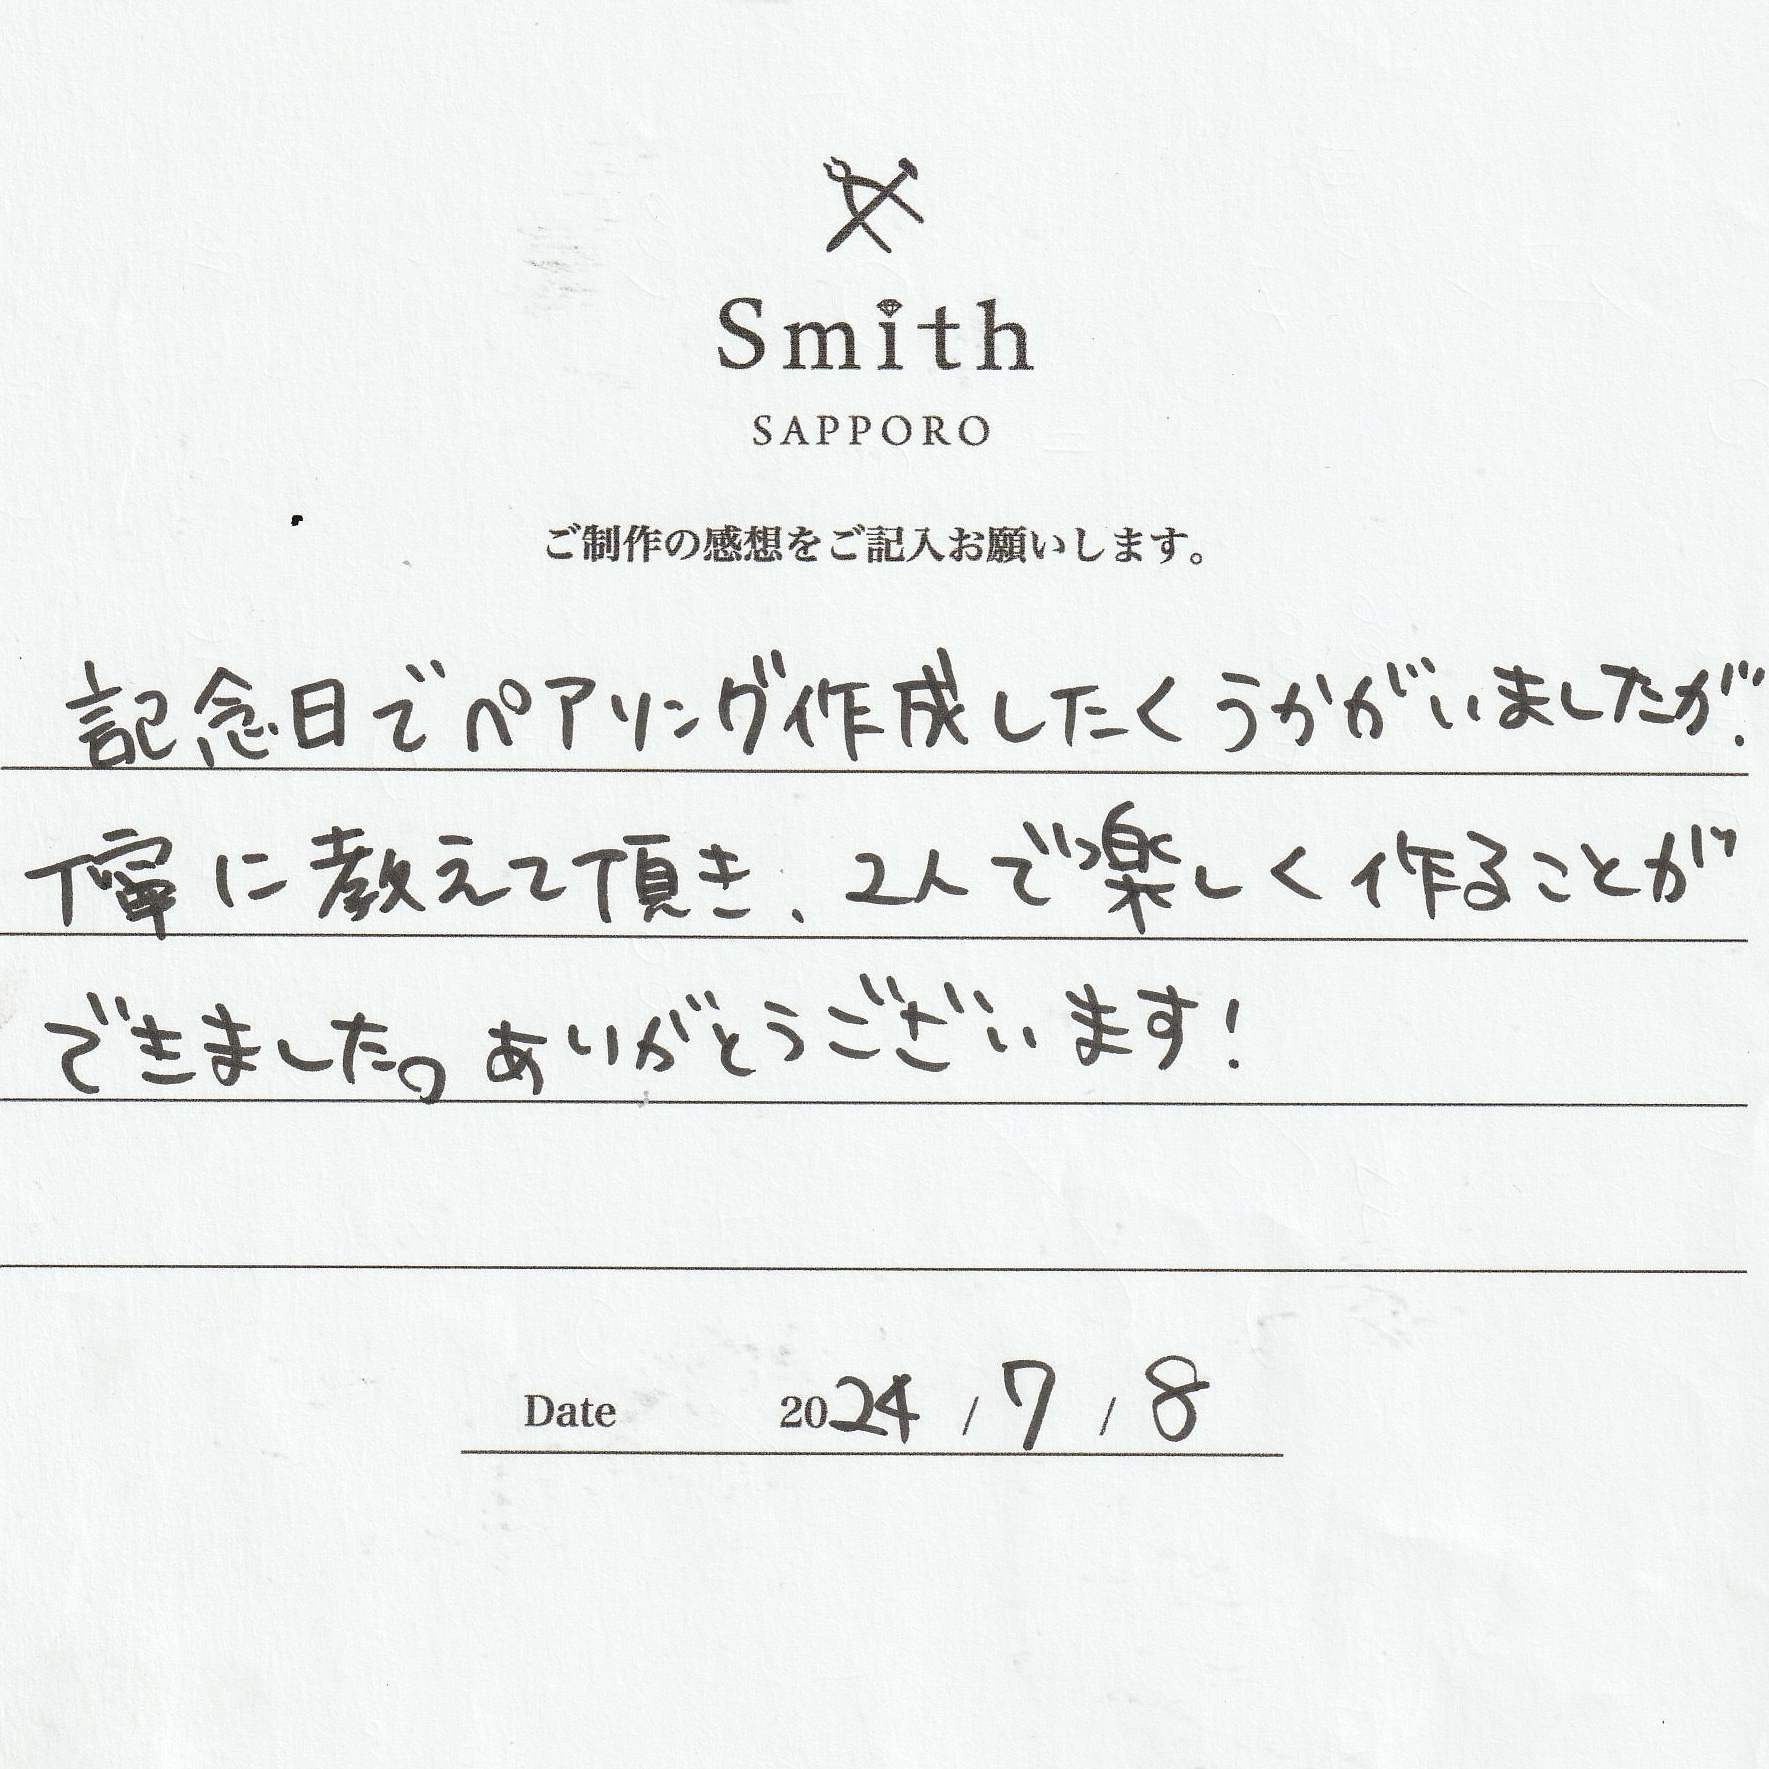 Smith
SAPPORO
ご制作の感想をご記入お願いします。
記念日でペアリング作成したくうかがいましたが、
丁寧に教えて頂き、2人で楽しく作ることが
できました。ありがとうございます!
Date 2024 / 7 / 8